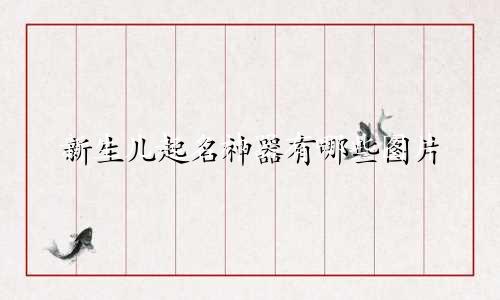 新生儿起名神器有哪些图片